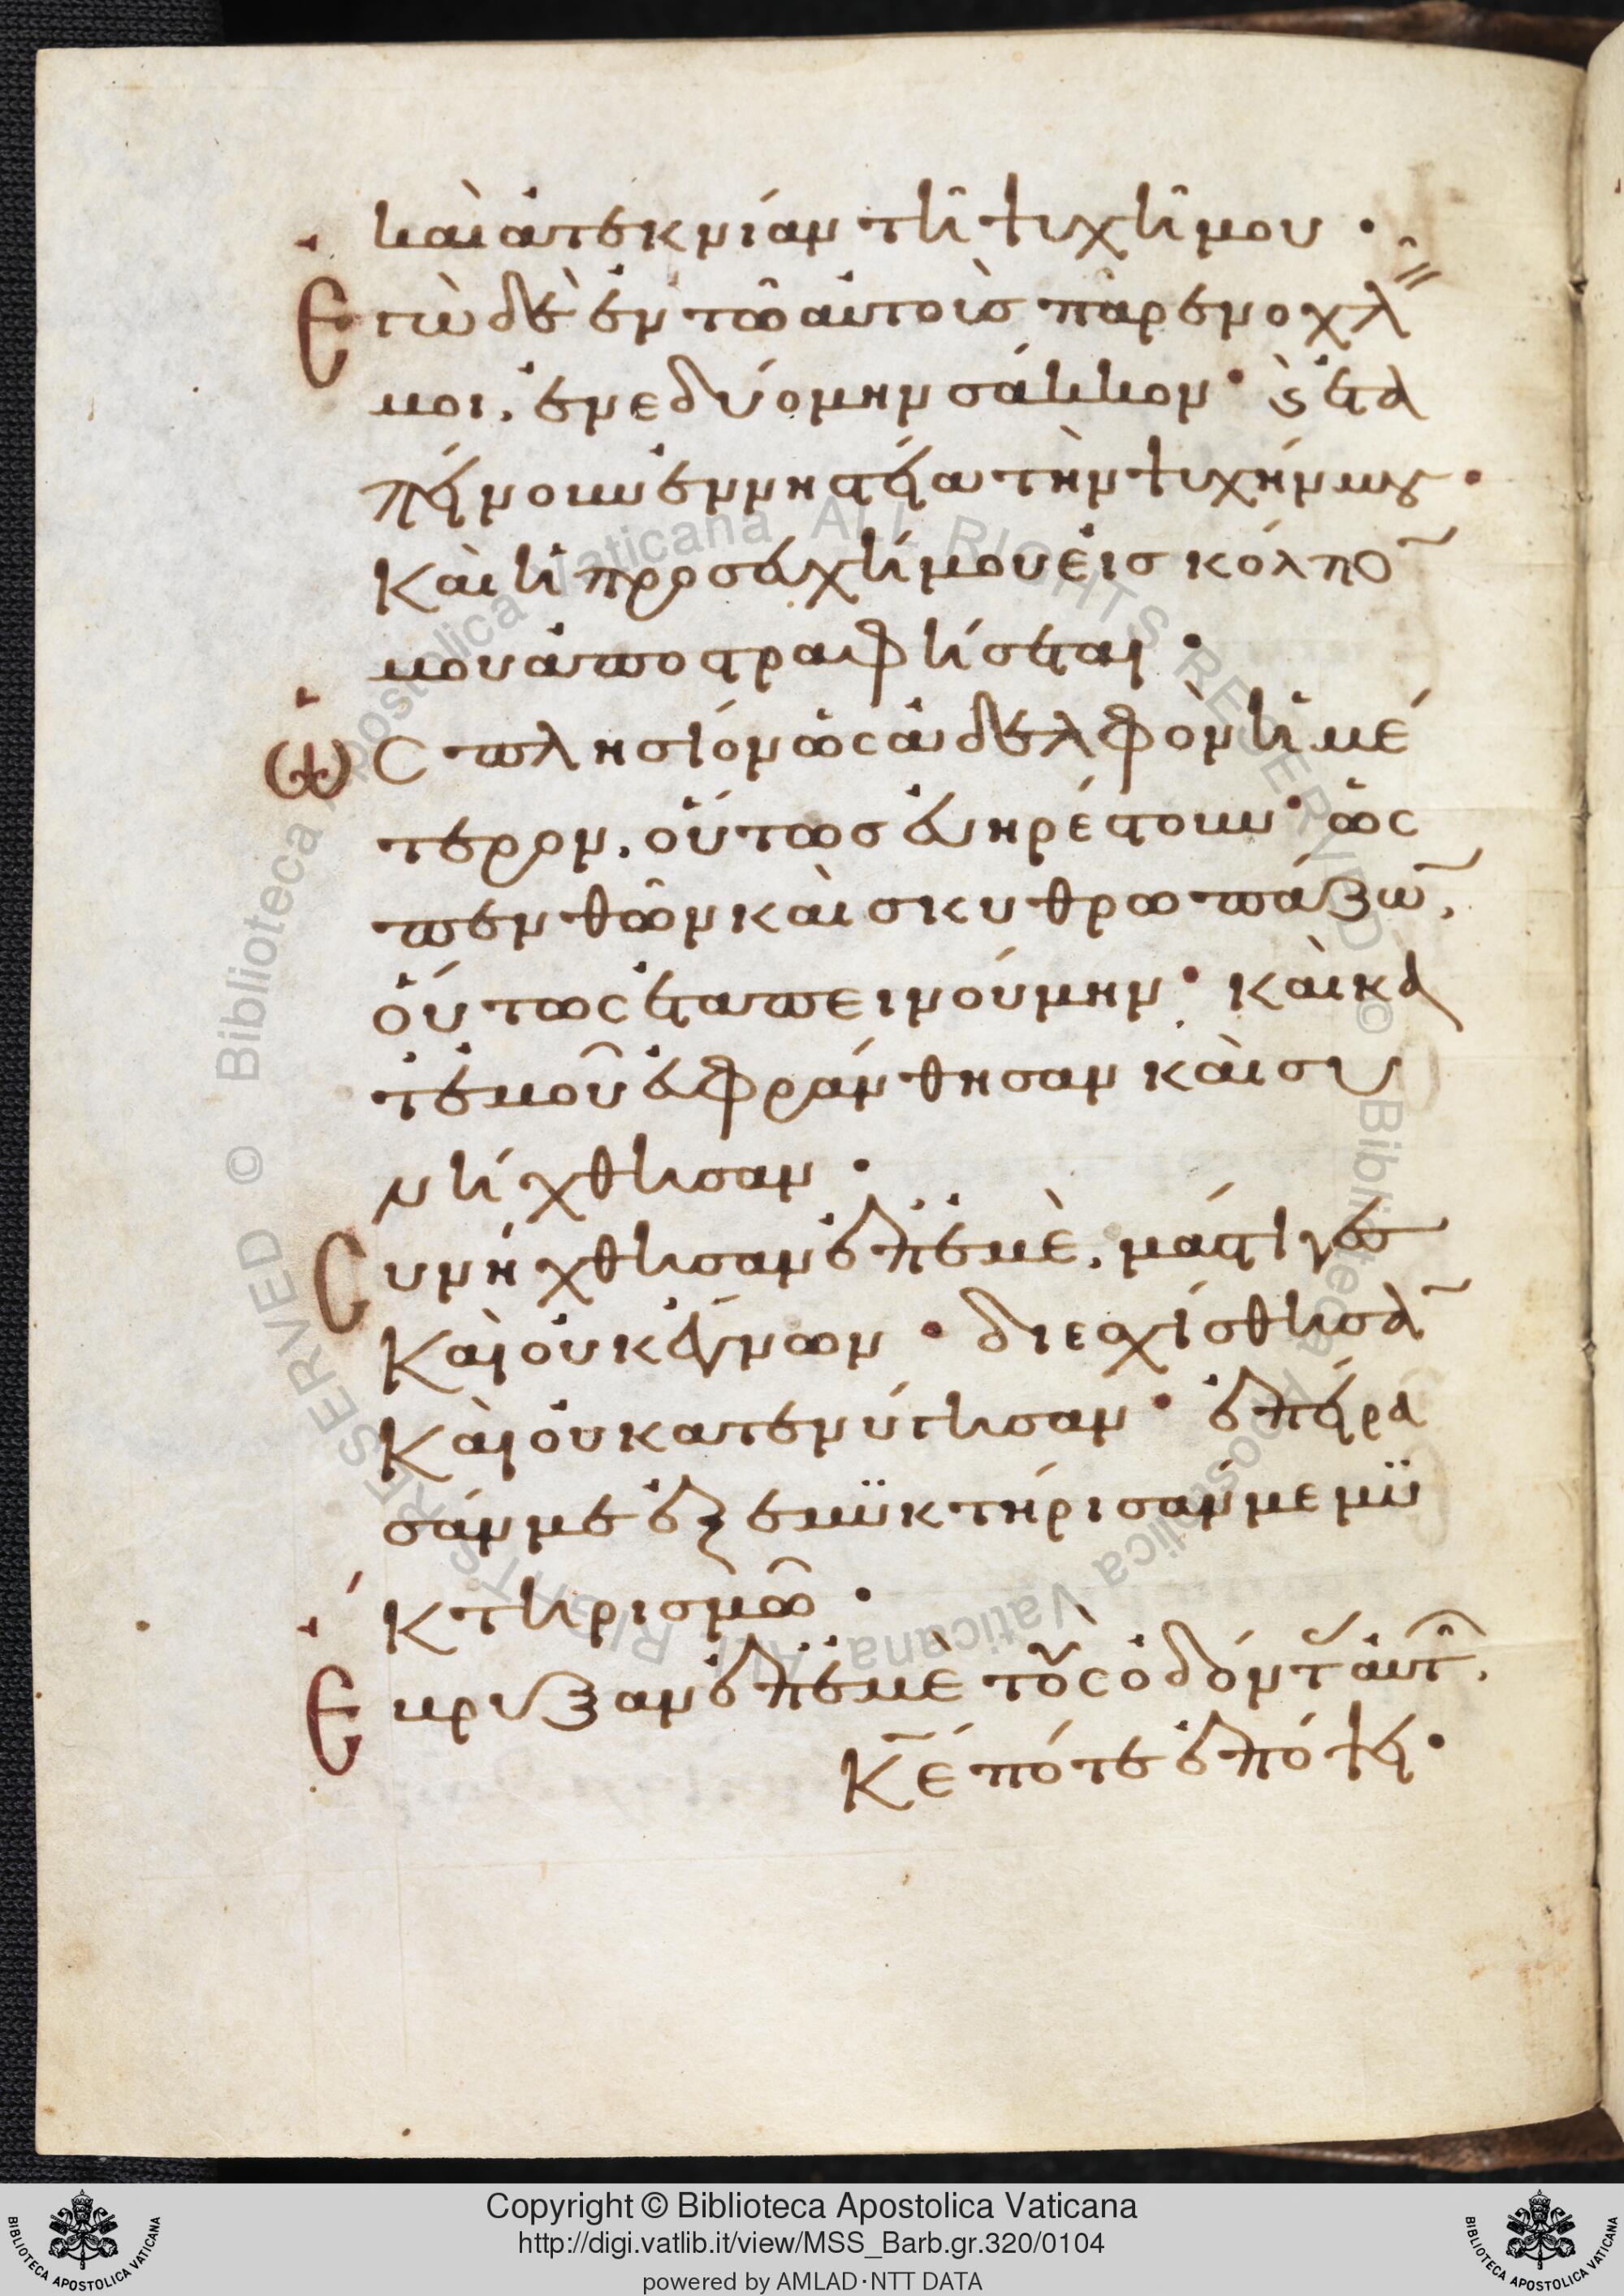 καὶ ἀτεκνίαν τῆ ψυχῆ μου ·
Ἐγὼ δὲ ἐν τῶ αὐτοὺς παρενοχλῆ
μοι, ἐνεδυόμην σάκκον · καὶ ἐτα
πείνουν ἐν νηστεία τὴν ψυχήν μου ·
Καὶ ἡ προσευχή μου εἰς κόλπο̄
μου ἀποστραφήσεται ·
Ὡς πλησίον ὡς ἀδελφὸν ἡμέ
τερον, οὕτως εὐηρέστουν · ὡς
πενθῶν καὶ σκυθρωπάζω̄,
οὕτως ἐταπεινούμην · καὶ κα
τ' ἐμοῦ εὐφράνθησαν καὶ συ
νήχθησαν ·
Συνήχθησαν ἐπ' ἐμὲ, μάστιγες
Καὶ οὐκ ἔγνων · διεσχίσθησᾱ
Καὶ οὐ κατενύγησαν · ἐπείρα
σάν με ἐξεμϋκτήρισάν με μϋ
κτηρισμῶ ·
Ἔβρυξαν ἐπ' ἐμὲ τοὺς ὀδόντας αὐτῶν,
Κ̄ε πότε ἐπόψη ·
Copyright © Biblioteca Apostolica Vaticana
http://digi.vatlib.it/view/MSS_Barb.gr.320/0104
powered by AMLAD·NTT DATA
BIBLIOTECA APOSTOLICA VATICANA
BIBLIOTECA APOSTOLICA VATICANA
© Biblioteca Apostolica Vaticana ALL RIGHTS RESERVED © Biblioteca Apostolica Vaticana ALL RIGHTS RESERVED